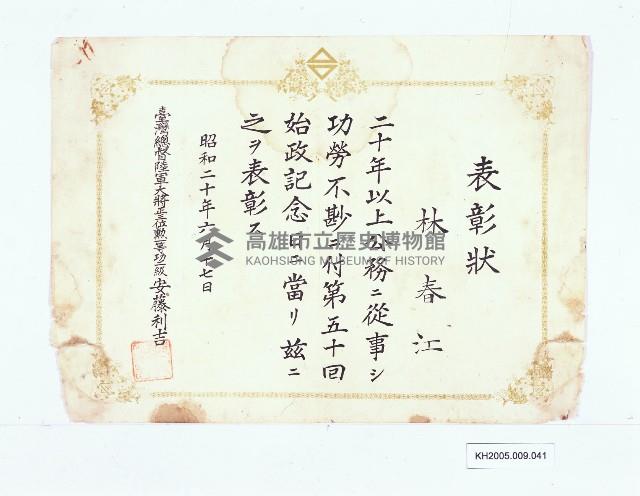 表彰狀
林春江
二十年以上公務ニ從事シ
功勞不尠ニ付第五十回
始政記念日ニ當リ茲ニ
之ヲ表彰ス
昭和二十年六月十七日
臺灣總督陸軍大將正三位勲一等功三級安藤利吉
高雄市立歷史博物館
KAOHSIUNG MUSEUM OF HISTORY
KH2005.009.041